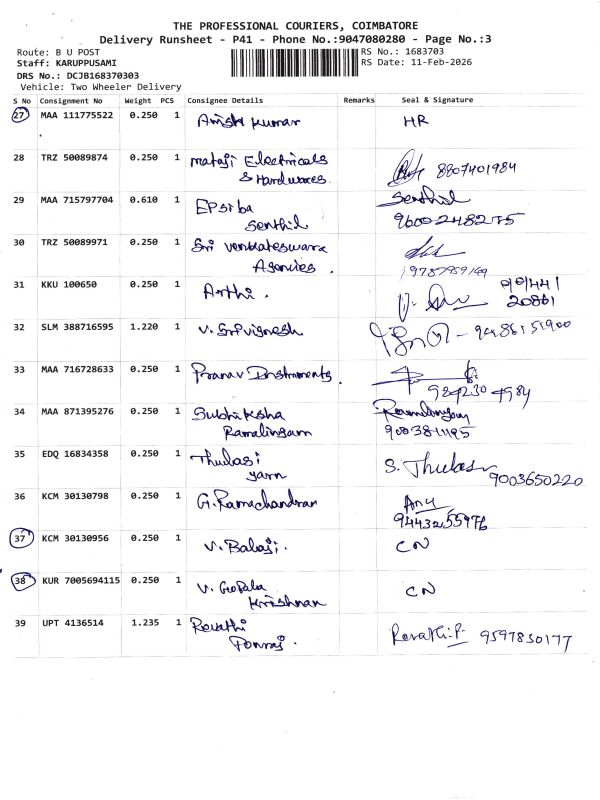 THE PROFESSIONAL COURIERS, COIMBATORE
Delivery Runsheet - P41 - Phone No.:9047080280 - Page No.:3
Route: B U POST
RS No.: 1683703
Staff: KARUPPUSAMI
RS Date: 11-Feb-2026
DRS No.: DCJB168370303
Vehicle: Two Wheeler Delivery
S No Consignment No Weight PCS Consignee Details Remarks Seal & Signature
27 MAA 111775522 0.250 1 Anish Kumar HR
28 TRZ 50089874 0.250 1 Mataji Electricals
& Hardwares. 8807401984
29 MAA 715797704 0.610 1 EPSiba Senthil
Senthil 9600248275
30 TRZ 50089971 0.250 1 Sri Venkateswara
Agencies.
31 KKU 100650 0.250 1 Arthi.
20861
32 SLM 388716595 1.220 1 V. Srivignesh
33 MAA 716728633 0.250 1 Pranav Instruments.
34 MAA 871395276 0.250 1 Subhiksha
Ramalingam
35 EDQ 16834358 0.250 1 Thulasi S. Thulasi
yarn 9003650220
36 KCM 30130798 0.250 1 G. Ramachandran Anu
9443255976
37 KCM 30130956 0.250 1 V. Balaji. CN
38 KUR 7005694115 0.250 1 V. Gopala CN
Krishnan
39 UPT 4136514 1.235 1 Revathi Revathi.P 9597830177
Ponraj.